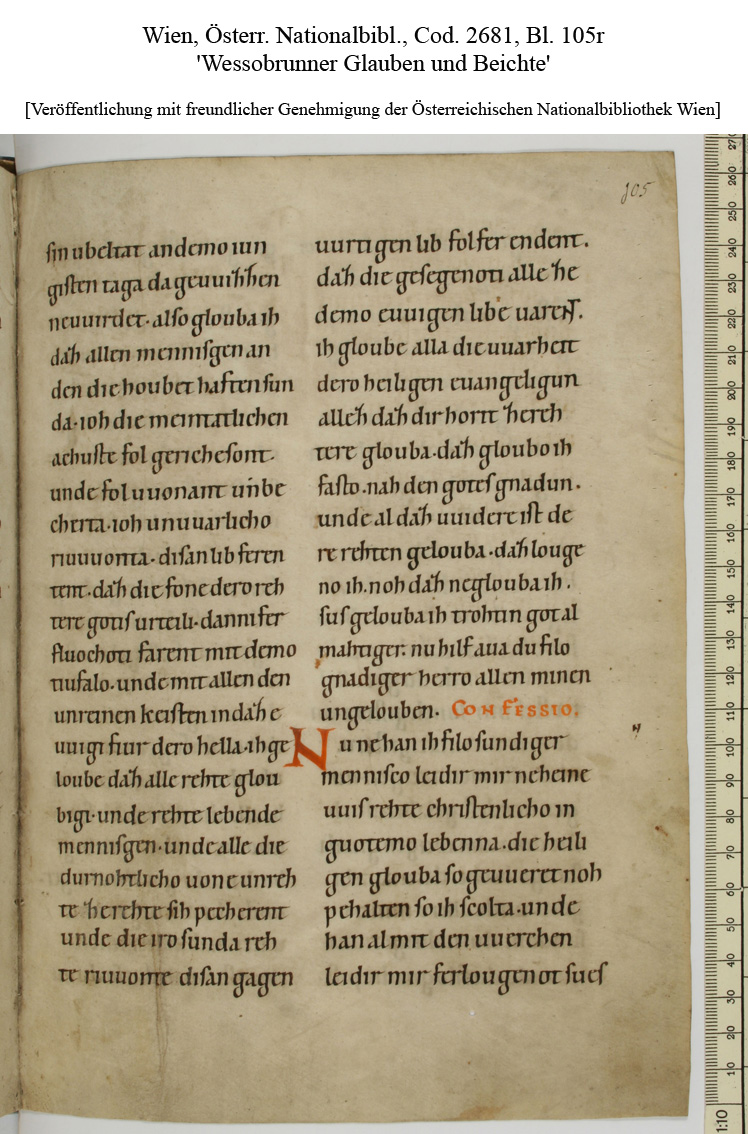 Wien, Österr. Nationalbibl., Cod. 2681, Bl. 105r
'Wessobrunner Glauben und Beichte'
[Veröffentlichung mit freundlicher Genehmigung der Österreichischen Nationalbibliothek Wien]
105
sin ubeltat andemo iun
gisten taga da geuuihhen
neuuirdet. also glouba ih
dah allen mennisgen an
den die houbethaften sun
da. ioh die meintatlichen
achuste fol gerichesont.
unde fol uuonant unbe
cherta. ioh unuuarlicho
riuuuonta. disan lib feren
tent. dah die fone dero reh
tere gotis urteili. dannifer
fluochoti farent mit demo
tiufalo. unde mit allen den
unreinen keisten in dah e
uuigi fiur dero hella. ih ge
loube dah alle rehte glou
bigi. unde rehte lebende
mennisgen. unde alle die
durnohtlicho uone unreh
te herehte sih pecherent
unde die iro sunda reh
te riuuonte disan gagen
uuurtigen lib folferendent.
dah die gesegenoti alle he
demo euuigen libe uarent.
ih gloube alla die uuarheit
dero heiligen euangeligun
alleh dah dir horit hereh
tere glouba. dah gloubo ih
fasto. nah den gotes gnadun.
unde al dah uuidere ist de
re rehten gelouba. dah louge
no ih. noh dah neglouba ih.
sus gelouba ih trohtin got al
mahtiger. nu hilf aua du filo
gnadiger herro allen minen
ungelouben. CONFESSIO.
Nu ne han ih filo sundiger
mennisco leidir mir neheine
uuis rehte christenlicho in
guotemo lebenna. die heili
gen glouba so geuueret noh
pehalten so ih scolta. unde
han al mit den uuerchen
leidir mir ferlougenot sues